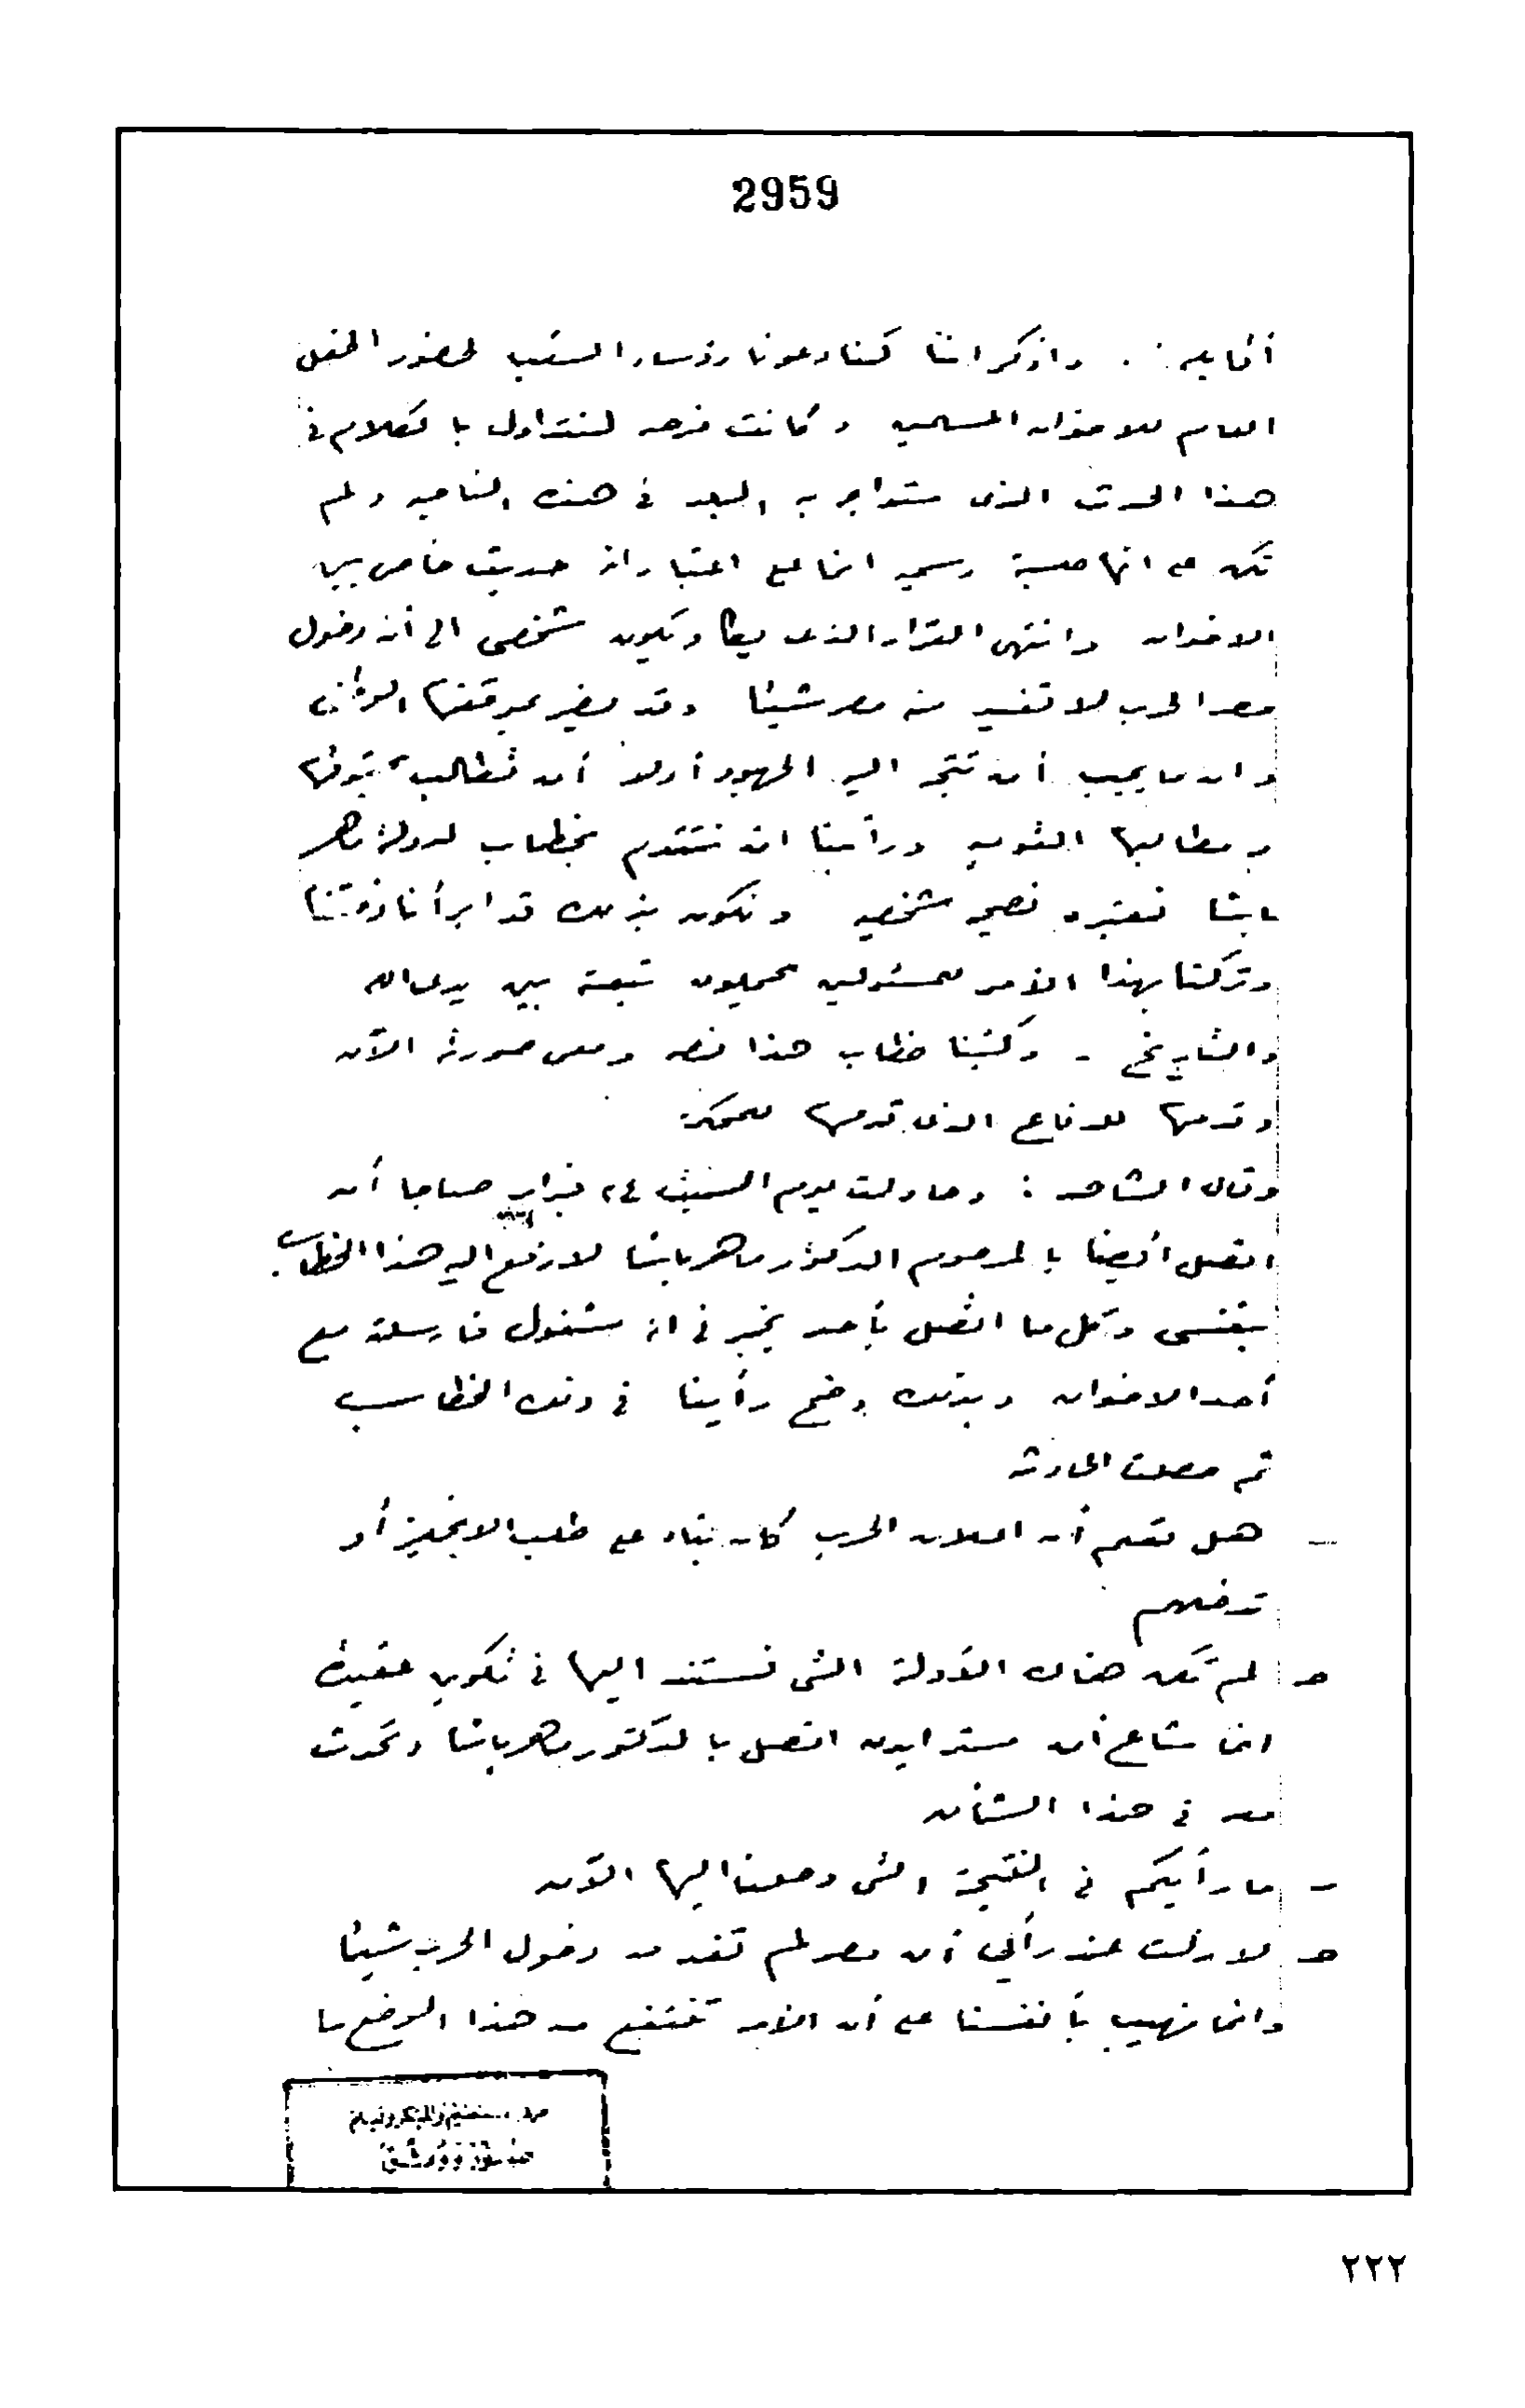 2959
واذكر اننا كنا دعونا رؤساء الشعب لحضور الحفل
العام للاخوان المسلمين وكانت فرصه لنتداول بالكلام فى
هذا الحدث الذى ستواجه به البلد فى هذه الناحيه ولم
تكن على انها جلسة رسميه انما على اعتبار انه حديث خاص بين
الاخوان وانتهى القرار الذى يكاد يكون شخصى الى أن دخول
مصر الحرب لا تفيد منه مصر شيئا وقد يضير بموقفها الوطنى
وان ما يجب أن تتجه اليه الجهود أولا أن نطالب بحقوقها
ومطالبها القوميه ورأينا ان نتقدم بخطاب لدولة ماهر
باشا نعتبره نصحيه شخصيه ونكون بذلك قد ابرأنا ذمتنا
وتركنا بهذا الأمر للمسئولين يحملون تبعته بين يدى الله
والتاريخ - وكتبنا خطاب هذا نصه ومعى صورته الآن
وقدمها للدفاع الذى قدمها للمحكمة
وقال الشاهد : وحاولت يوم السبت ٢٤ فبراير صباحا أن
اتصل أيضا بالمرحوم الدكتور ماهر باشا لارفع اليه هذا الخطاب
بنفسى وكل ما اتصل بأحد يخبرنى انه مشغول فارسلته مع
أحد الاخوان وبذلك وضح رأينا فى ذلك الخطاب
ثم حصلت الحادثه
— هل تعلم أن اعلان الحرب كان بناء على طلب الانجليز أو
تدخلهم
حـ لم تكن هناك الأدلة التى نستند اليها فى تكوين عقيدة
انما شاع أن مستر ايدن اتصل بالدكتور ماهر باشا وتحدث
معه فى هذا الشأن
— ما رأيكم فى النتيجة التى وصلنا اليها الآن
حـ لا زلت عند رأيى أن مصر لم تفد من دخول الحرب شيئا
وانما نهيب بأنفسنا على أن الأمه تنتفع من هذا الوضع ما
٢٢٢